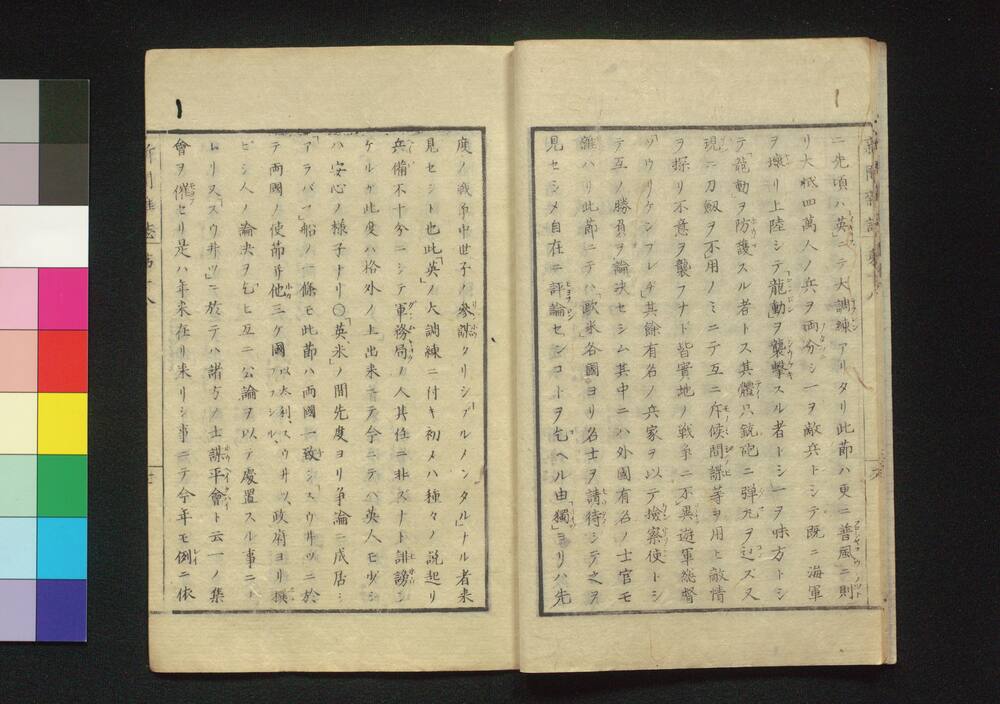 ニ先頃ハ「英」ニテ大調練アリタリ此節ハ更ニ普風ニ則
リ大概四萬人ノ兵ヲ両分シ一ヲ敵兵トシテ既ニ海軍
ヲ壊リ上陸シテ「龍動」ヲ襲撃スル者トシ一ヲ味方トシ
テ龍動ヲ防護スル者トス其體只銃砲ニ弾丸ヲ込ス又
現ニ刀劔ヲ不用ノミニテ互ニ斥候間諜等ヲ用ヒ敵情
ヲ探リ不意ヲ襲フナド皆實地ノ戦争ニ不異遊軍総督
其餘有名ノ兵家ヲ以テ撿察使トシ
テ互ノ勝負ヲ論決セシム其中ニハ外國有名ノ士官モ
雑ハリ此節ニテハ歐米各國ヨリ名士ヲ請待シテ之ヲ
見セシメ自在ニ評論センコトヲ乞ヘル由「獨」ヨリハ先
度ノ戦争中世子ノ參謀タリシ「ブルメンタル」ナル者来
見セシト也此「英」ノ大調練ニ付キ初メハ種々ノ説起リ
兵備不十分ニシテ軍務局ノ人其任ニ非スナト誹謗シ
ケルガ此度ハ格外ノ上出来ニテ今ニテハ英人モ少シ
ハ安心ノ様子ナリ〇「英、米」ノ間先度ヨリ争論ニ成居シ
「アラバマ」船ノ一條モ此節ハ両國一致シスウ井ツニ於
テ両國ノ使節并他三ケ國以太利、スウ井ツ、政府ヨリ撰
ビシ人ノ論決ヲ乞ヒ互ニ公論ヲ以テ處置スル事ニナ
レリ又「スウ井ツ」ニ於テハ諸方ノ士謀平會ト云一ノ集
會ヲ催セリ是ハ年来在リ来リシ事ニテ今年モ例ニ依